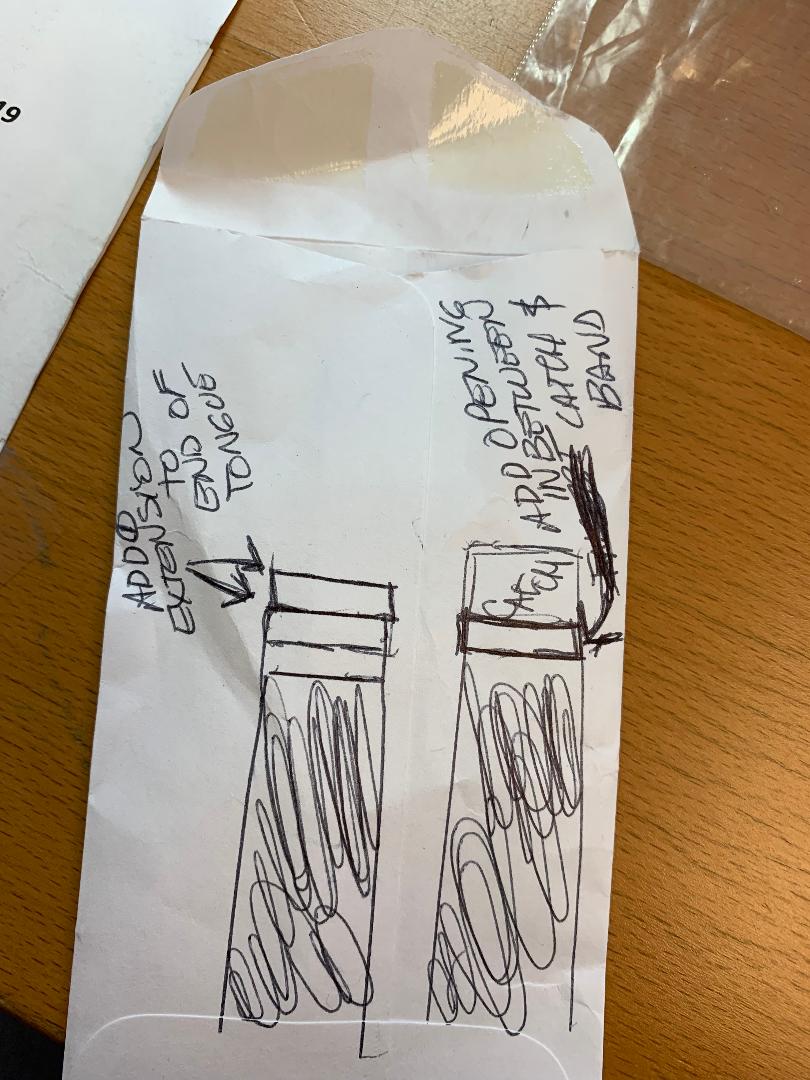 19
ADD
EXTENSION
TO
END OF
TONGUE
ADD OPENING
IN BETWEEN
CATCH &
BAND
CATCH